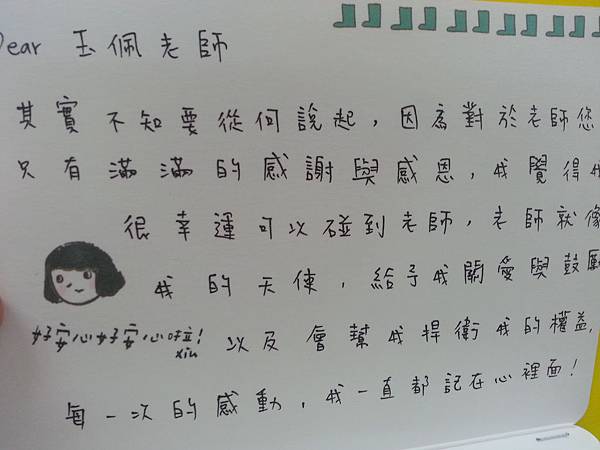 Dear 玉佩老師
其實不知要從何說起，因為對於老師您
只有滿滿的感謝與感恩，我覺得我
很幸運可以碰到老師，老師就像
我的天使，給予我關愛與鼓勵
好安心好安心啦！
xin
以及會幫我捍衛我的權益，
每一次的感動，我一直都記在心裡面！